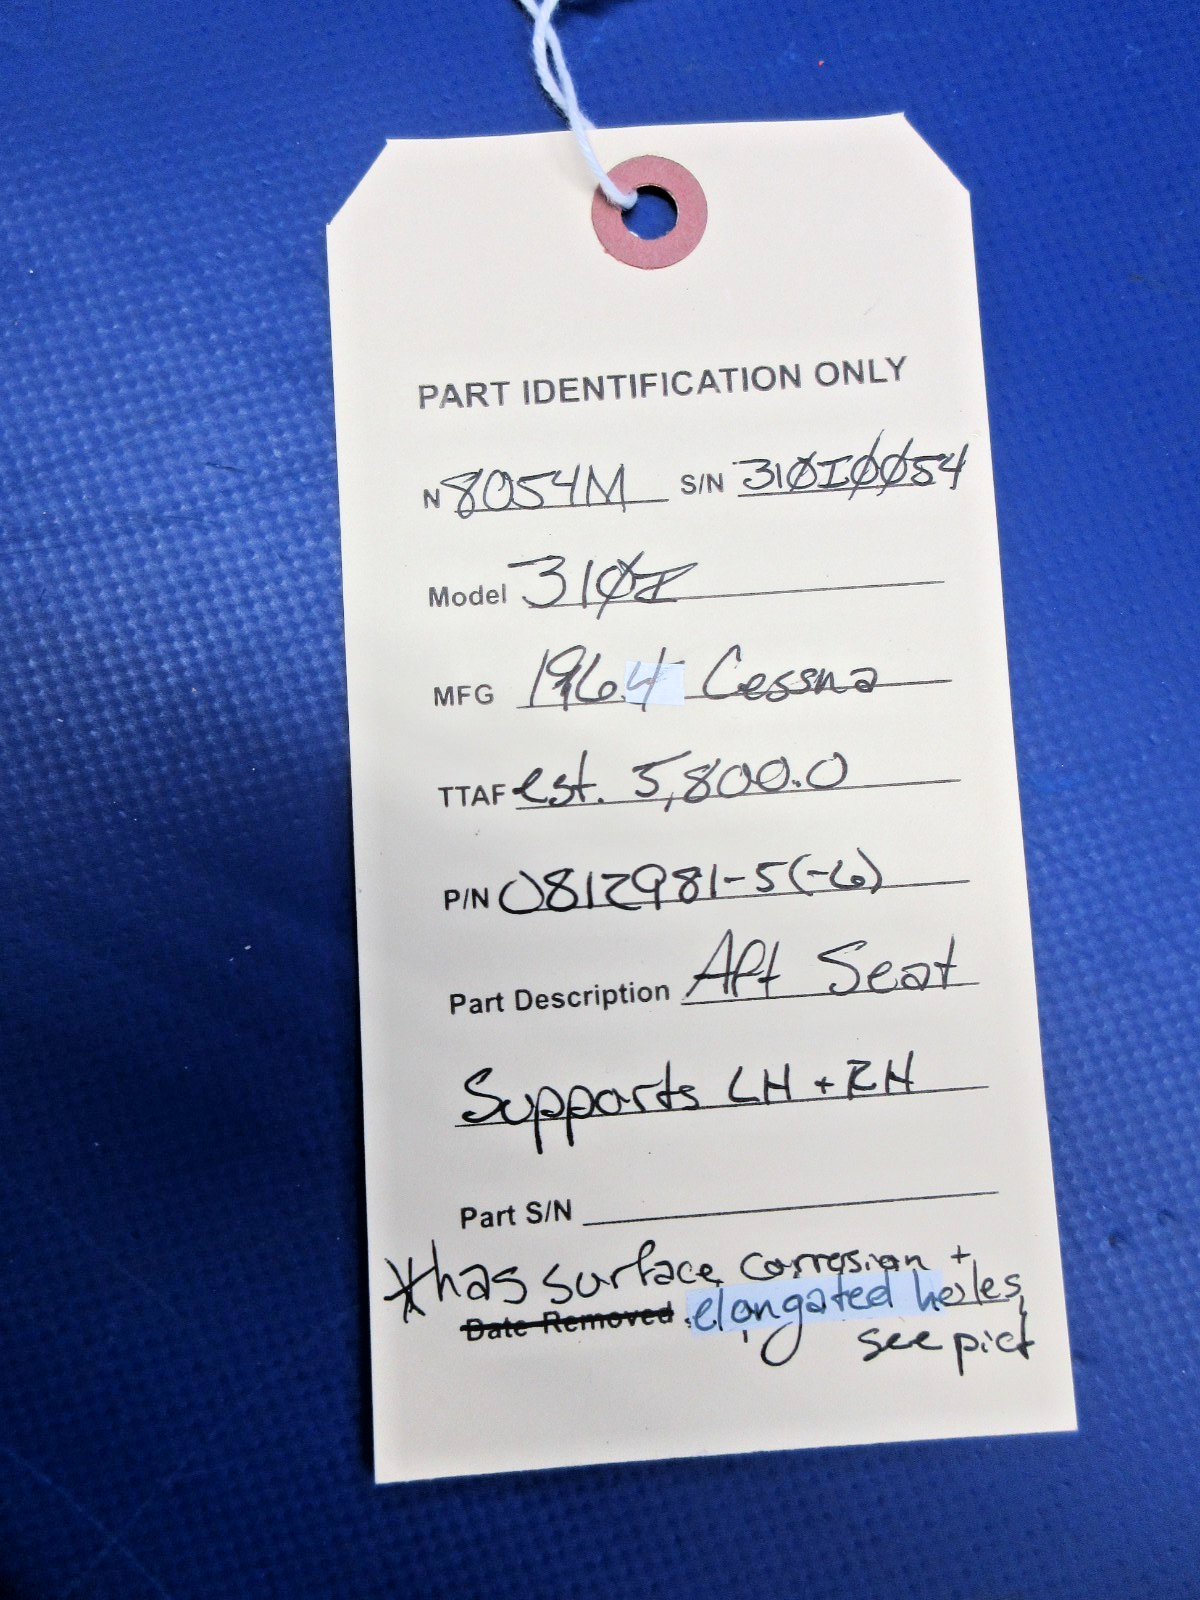 PART IDENTIFICATION ONLY
N 8054M S/N 310I0054
Model 310I
MFG 1964 Cessna
TTAF est. 5,800.0
P/N 0812981-5(-6)
Part Description Aft Seat
Supports LH + RH
Part S/N
*has surface corrosion +
Date Removed elongated holes,
see pict